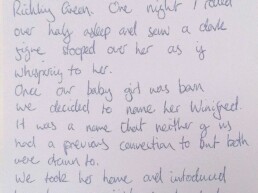 Green. One night I rolled
over half asleep and saw a dark
figure stooped over her as if
whispering to her.
Once our baby girl was born
we decided to name her Winifred.
It was a name that neither of us
had a previous connection to but both
were drawn to.
We took her home and introduced